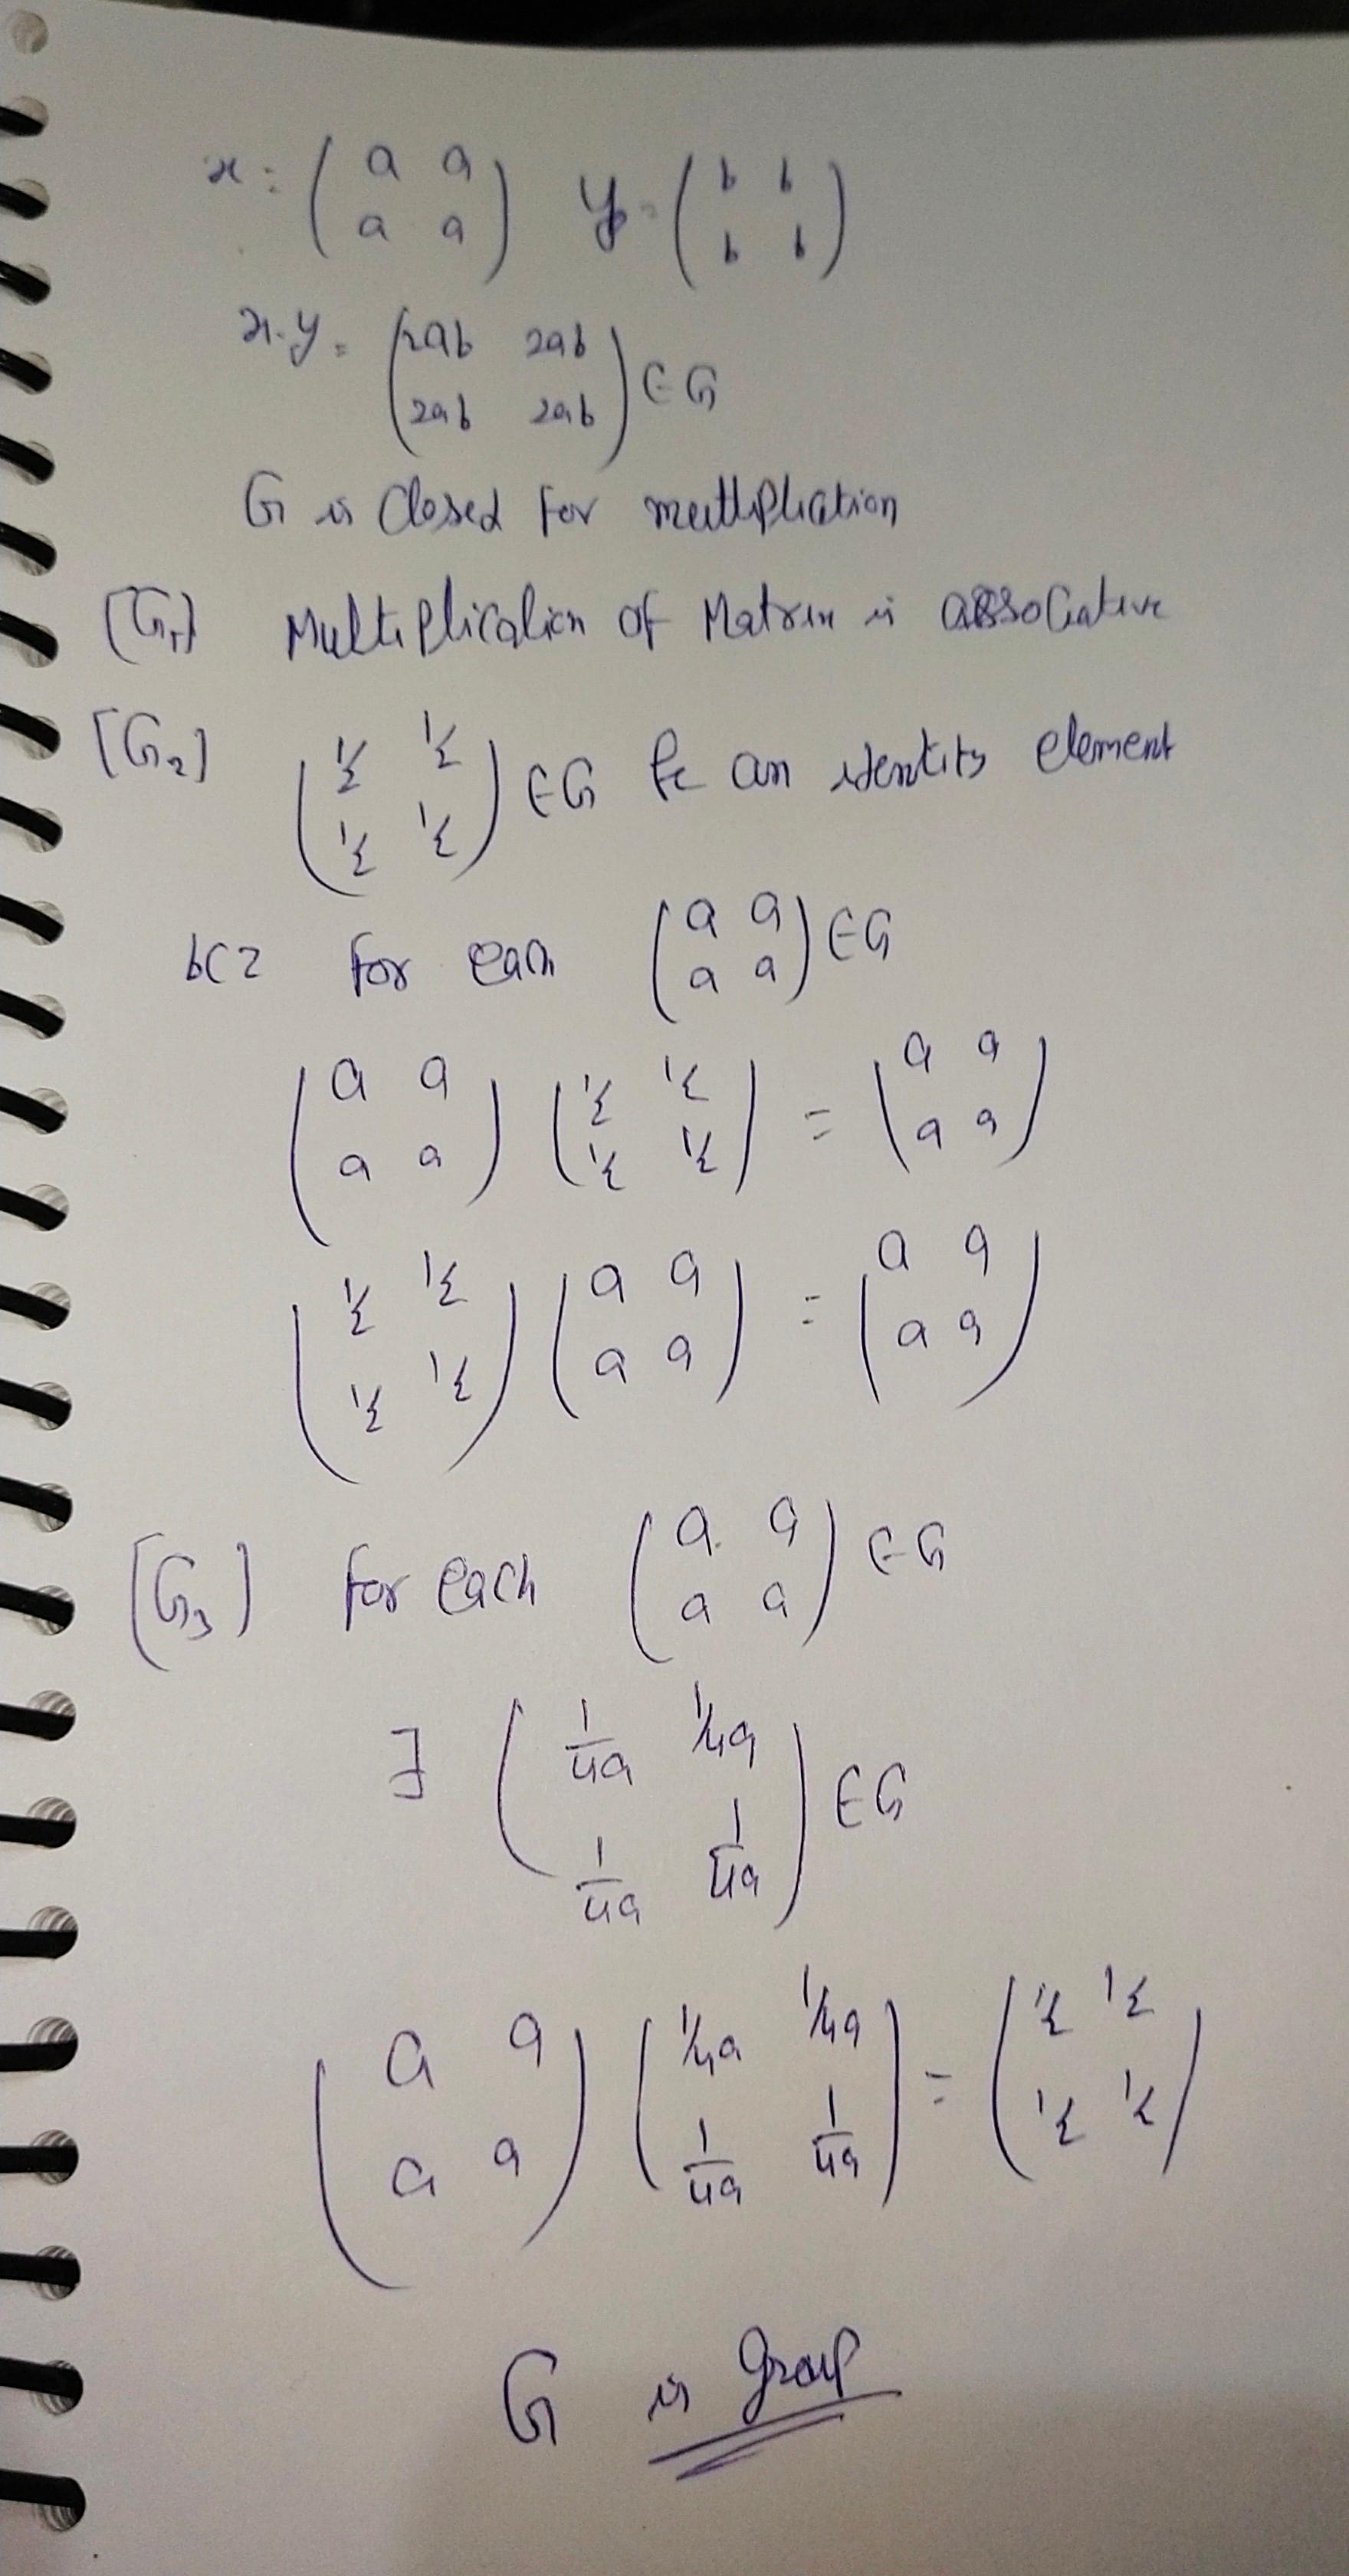 x = ( a a ) y = ( b b )
( a a ) ( b b )
x.y = ( 2ab 2ab ) ∈ G
( 2ab 2ab )
G is Closed for multiplication
[G1] Multiplication of Matrix is associative
[G2] ( 1/2 1/2 ) ∈ G be an identity element
( 1/2 1/2 )
bcz for each ( a a ) ∈ G
( a a )
( a a ) ( 1/2 1/2 ) = ( a a )
( a a ) ( 1/2 1/2 ) ( a a )
( 1/2 1/2 ) ( a a ) = ( a a )
( 1/2 1/2 ) ( a a ) ( a a )
[G3] for each ( a a ) ∈ G
( a a )
∃ ( 1/4a 1/4a ) ∈ G
( 1/4a 1/4a )
( a a ) ( 1/4a 1/4a ) = ( 1/2 1/2 )
( a a ) ( 1/4a 1/4a ) ( 1/2 1/2 )
G is group